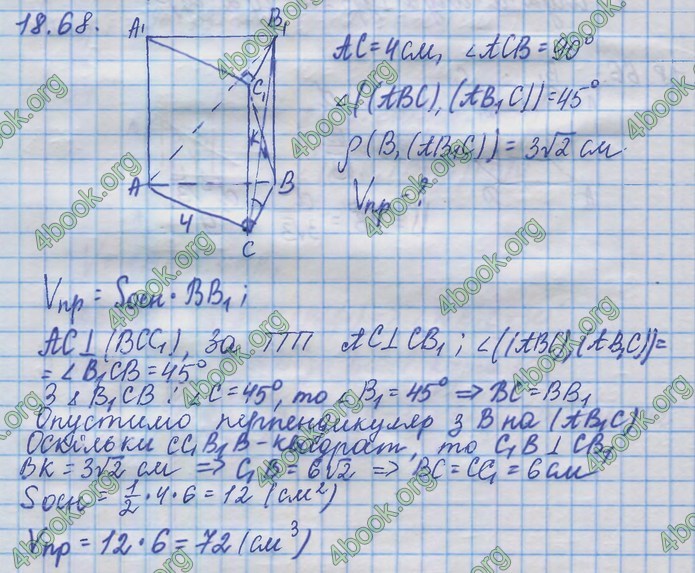 18.68.
A₁
B₁
C₁
K
A
B
4
C
AC = 4 см, ∠ACB = 90°
∠((ABC), (AB₁C)) = 45°
ρ(B, (AB₁C)) = 3√2 см.
Vпр - ?
Vпр = Sосн · BB₁;
AC ⊥ (BCC₁), за ТТП AC ⊥ CB₁; ∠((ABC), (AB₁C)) =
= ∠B₁CB = 45°
З △ B₁CB: ∠C = 45°, то ∠B₁ = 45° ⇒ BC = BB₁
Опустимо перпендикуляр з B на (AB₁C)
Оскільки CC₁B₁B - квадрат, то C₁B ⊥ CB₁
BK = 3√2 см ⇒ C₁B = 6√2 ⇒ BC = CC₁ = 6 см
Sосн = 1/2 · 4 · 6 = 12 (см²)
Vпр = 12 · 6 = 72 (см³)
4book.org